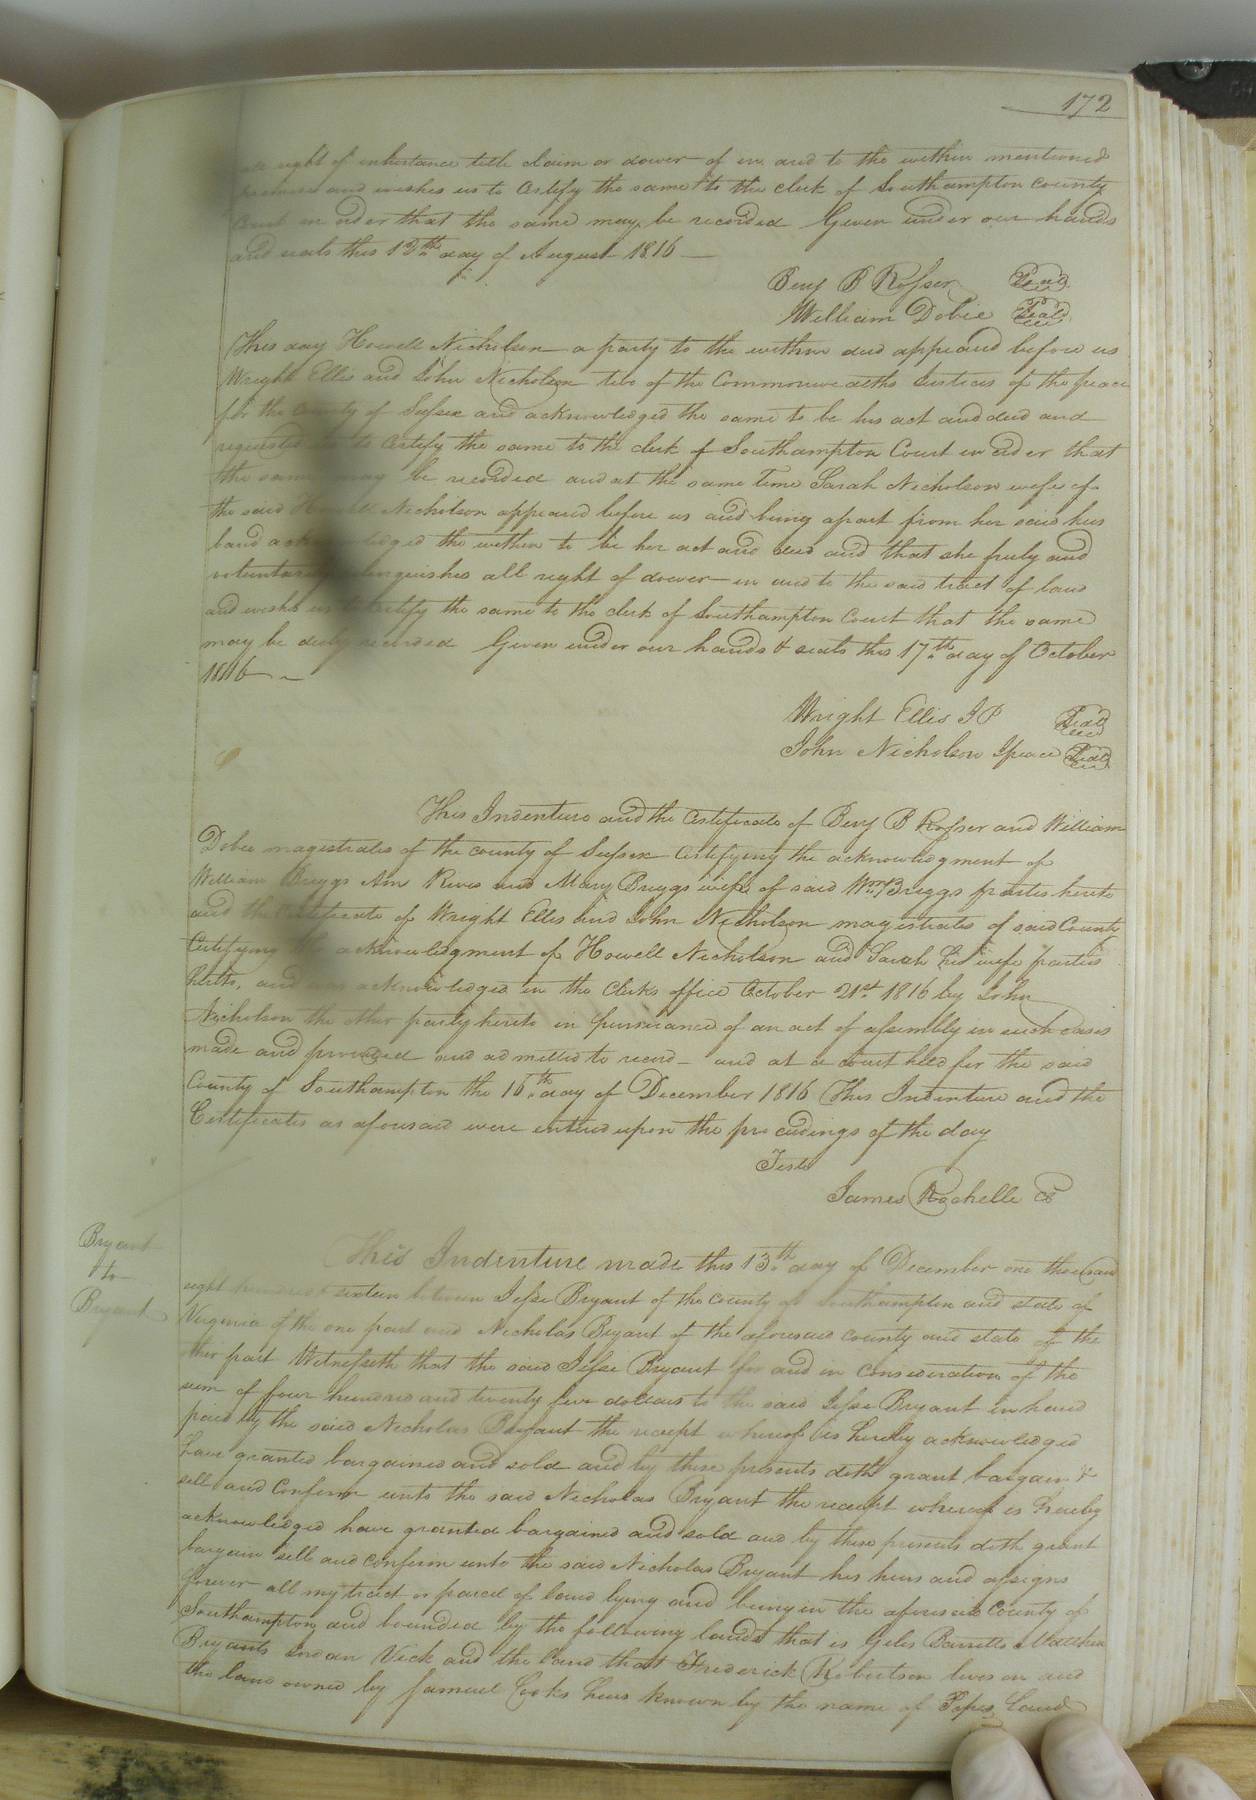 172
right of inheritance title claim or dower of in and to the within mentioned
premises and wishes us to Certify the same to the clerk of Southampton county
Court in order that the same may be recorded Given under our hands
and seals this 13th day of August 1816
Benj B Rosser Seal
William Dobie Seal
This day Howell Nicholson a party to the within deed appeared before us
Wright Ellis and John Nicholson two of the Commonwealths Justices of the peace
for the County of Sussex and acknowledged the same to be his act and deed and
requested us to Certify the same to the clerk of Southampton Court in order that
the same may be recorded and at the same time Sarah Nicholson wife of
the said Howell Nicholson appeared before us and being apart from her said hus
band acknowledged the within to be her act and deed and that she freely and
voluntarily relinguishes all right of dower in and to the said tract of land
and wishes us to Certify the same to the clerk of Southampton Court that the same
may be duly recorded Given under our hands & seals this 17th day of October
1816
Wright Ellis JP Seal
John Nicholson Jpeace Seal
This Indenture and the Certificate of Benj B Rosser and William
Dobie magistrates of the county of Sussex Certifying the acknowledgment of
William Briggs Ann Rives and Mary Briggs wife of said Wm Briggs parties hereto
and the Certificate of Wright Ellis and John Nicholson magistrates of said County
Certifying the acknowledgment of Howell Nicholson and Sarah his wife parties
hereto, and was acknowledged in the Clerks office October 21st 1816 by John
Nicholson the other party hereto in pursuance of an act of assembly in such cases
made and provided and admitted to record - and at a Court held for the said
County of Southampton the 16th day of December 1816 This Indenture and the
Certificates as aforesaid were entered upon the proceedings of the day
Teste
James Rochelle C
Bryant
to
Bryant
This Indenture made this 13th day of December one thousand
eight hundred & sixteen between Jesse Bryant of the County of Southampton and state of
Virginia of the one part and Nicholas Bryant of the aforesaid county and state of the
other part Witnesseth that the said Jesse Bryant for and in Consideration of the
sum of four hundred and twenty five dollars to the said Jesse Bryant in hand
paid by the said Nicholas Bryant the receipt whereof is hereby acknowledged
have granted bargained and sold and by these presents doth grant bargain &
sell and Confirm unto the said Nicholas Bryant the receipt whereof is hereby
acknowledged have granted bargained and sold and by these presents doth grant
bargain sell and confirm unto the said Nicholas Bryant his heirs and assigns
forever all my tract or parcel of land lying and being in the aforesaid County of
Southampton and bounded by the following lands that is Giles Barretts Matthew
Bryants Jordan Vick and the land that Frederick Robertson lives on and
the land owned by Samuel Cooks heirs known by the name of Popes land